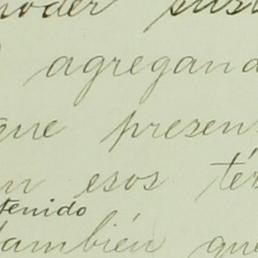 poder sus
agregand
que presen
en esos tér
tenido
también que